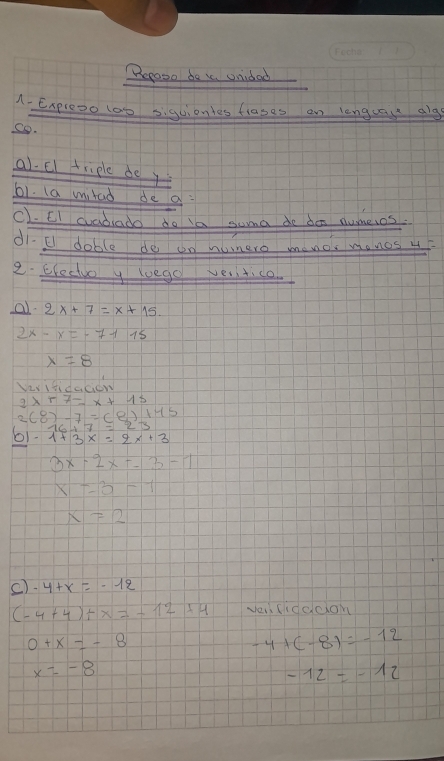 Fecha
Repaso de la unidad
1- Expreso las siguientes frases en lenguaje alge
co.
a)- El triple de y:
b)- la mitad de a:
c)- El cuadrado de la suma de dos numeros.
d)- El doble de un numero menos 4 =
2- Efectuo y luego verifico
a)- 2x + 7 = x + 15
2x - x = -7+ 15
x = 8
verificación
2x + 7 = x + 15
2(8) - 7 = (8) + 15
16 + 7 = 23
b)- 1 + 3x = 2x + 3
3x - 2x = 3 - 1
x = 3 - 1
x = 2
c) -4+x = -12
(-4+4)+x = -12+4
0 + x = - 8
x = -8
verificacion
-4+(-8) = -12
-12 = -12